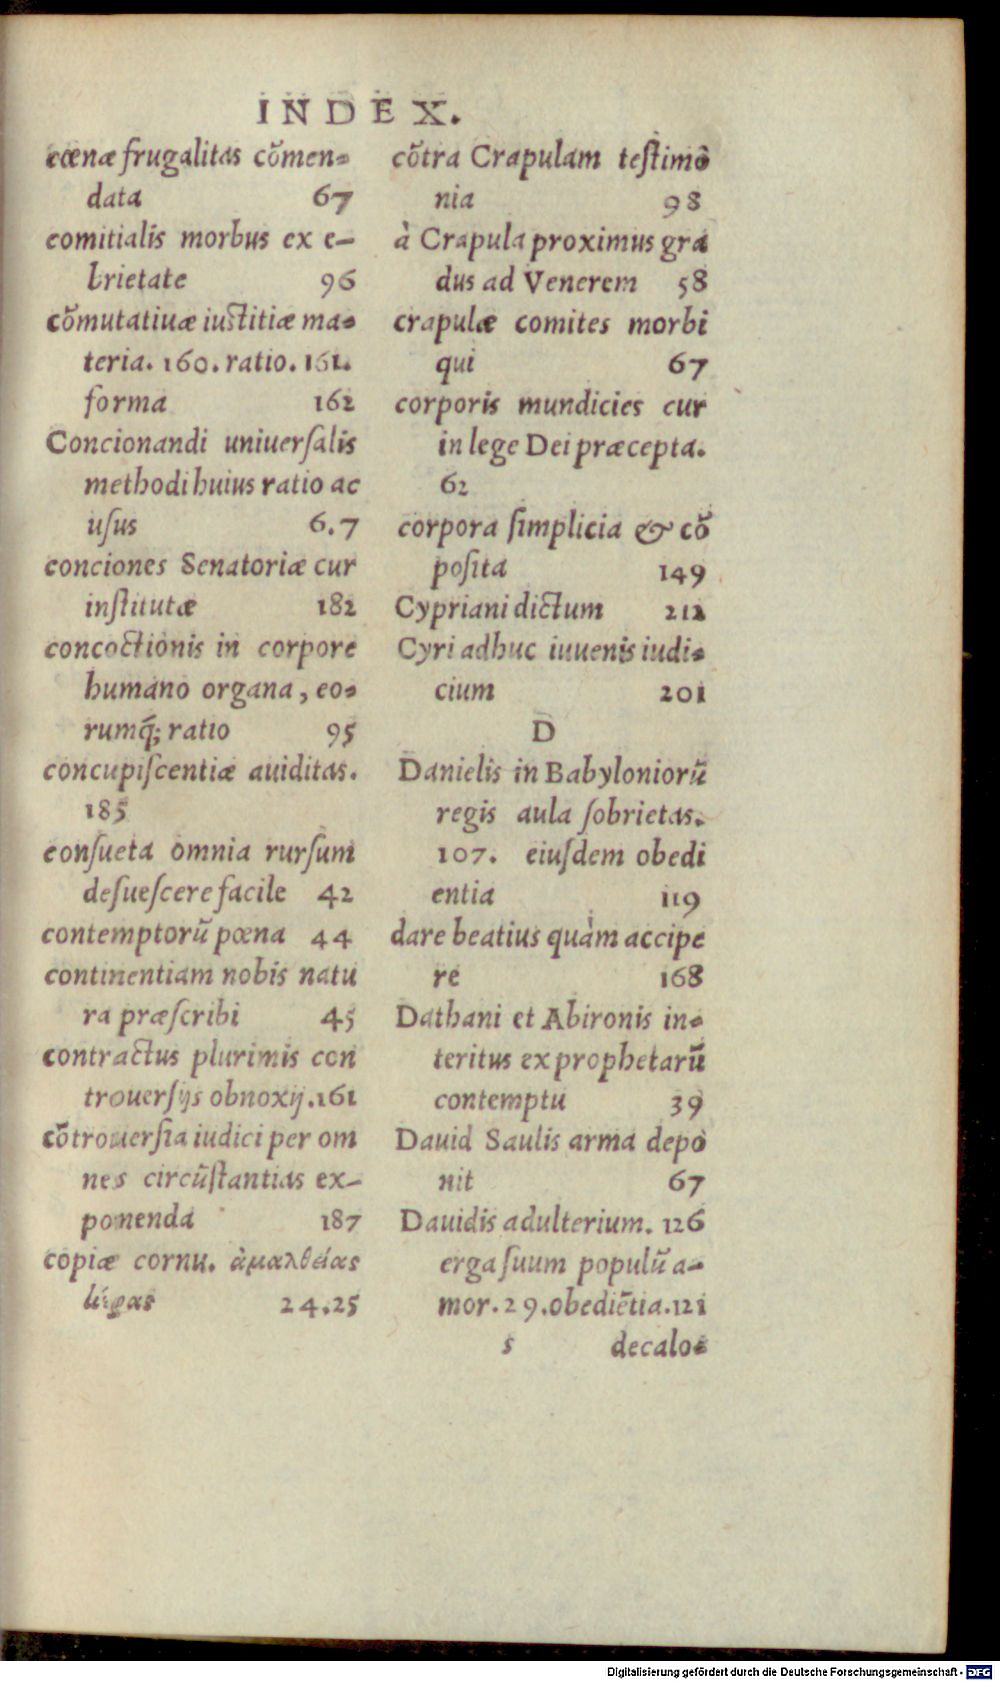 INDEX.
cœnæ frugalitas cõmen-
data 67
comitialis morbus ex e-
brietate 96
cõmutatiuæ iustitiæ ma-
teria. 160. ratio. 161.
forma 162
Concionandi uniuerſalis
methodi huius ratio ac
uſus 6.7
conciones Senatoriæ cur
inſtitutæ 182
concoctionis in corpore
humano organa, eo-
rumq́; ratio 95
concupiſcentiæ auiditas.
185
conſueta omnia rurſum
deſueſcere facile 42
contemptorũ pœna 44
continentiam nobis natu
ra præſcribi 45
contractus plurimis con
trouerſijs obnoxij. 161
cõtrouerſia iudici per om
nes circũſtantias ex-
ponenda 187
copiæ cornu. ἀμαλθείας
24.25
cõtra Crapulam teſtimo
nia 98
à Crapula proximus gra
dus ad Venerem 58
crapulæ comites morbi
qui 67
corporis mundicies cur
in lege Dei præcepta.
62
corpora ſimplicia & cõ
poſita 149
Cypriani dictum 212
Cyri adhuc iuuenis iudi-
cium 201
D
Danielis in Babyloniorũ
regis aula ſobrietas.
107. eiuſdem obedi
entia 119
dare beatius quàm accipe
re 168
Dathani et Abironis in-
teritus ex prophetarũ
contemptu 39
Dauid Saulis arma depo
nit 67
Dauidis adulterium. 126
erga ſuum populũ a-
mor. 29. obediẽtia. 121
s decalo-
Digitalisierung gefördert durch die Deutsche Forschungsgemeinschaft - DFG